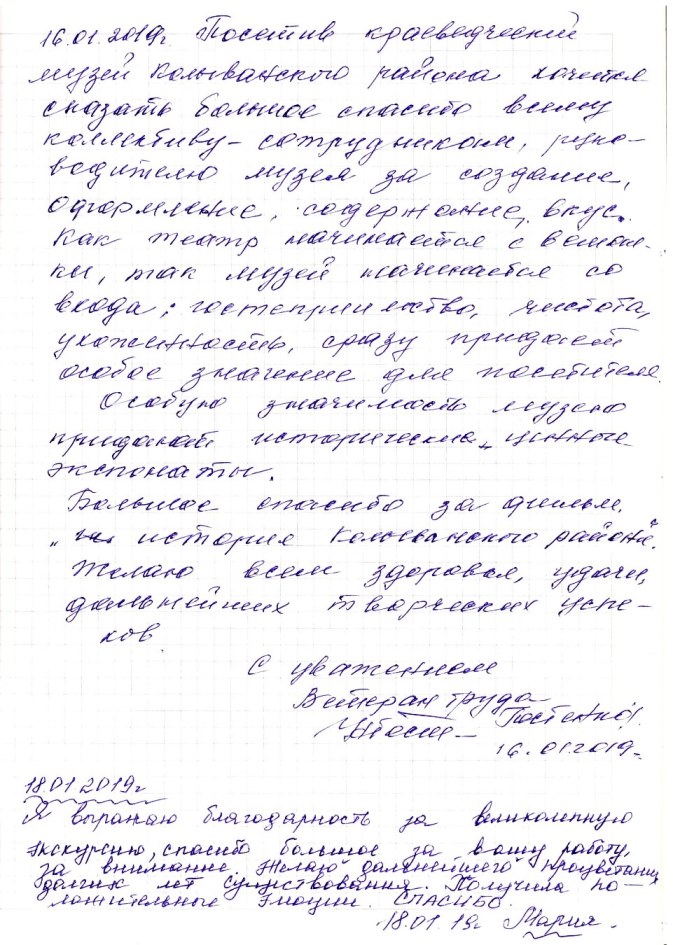 16.01.2019г. Посетив краеведческий
музей Колыванского района хочется
сказать большое спасибо всему
коллективу - сотрудникам, руко-
водителю музея за создание,
оформление, содержание, вкус.
Как театр начинается с вешал-
ки, так музей начинается со
входа: гостеприимство, чистота,
ухоженность, сразу придает
особое значение для посетителя.
Особую значимость музею
придают исторические, ценные
экспонаты.
Большое спасибо за фильм.
„ история Колыванского района".
Желаю всем здоровья, удачи,
дальнейших творческих успе-
хов
С уважением
Ветеран труда
16.01.2019г.
18.01 2019г
Я выражаю благодарность за великолепную
экскурсию, спасибо большое за вашу работу,
за внимание. Желаю дальнейшего процветания
долгих лет существования. Получила по-
ложительные эмоции. СПАСИБО.
18.01 19г Мария.